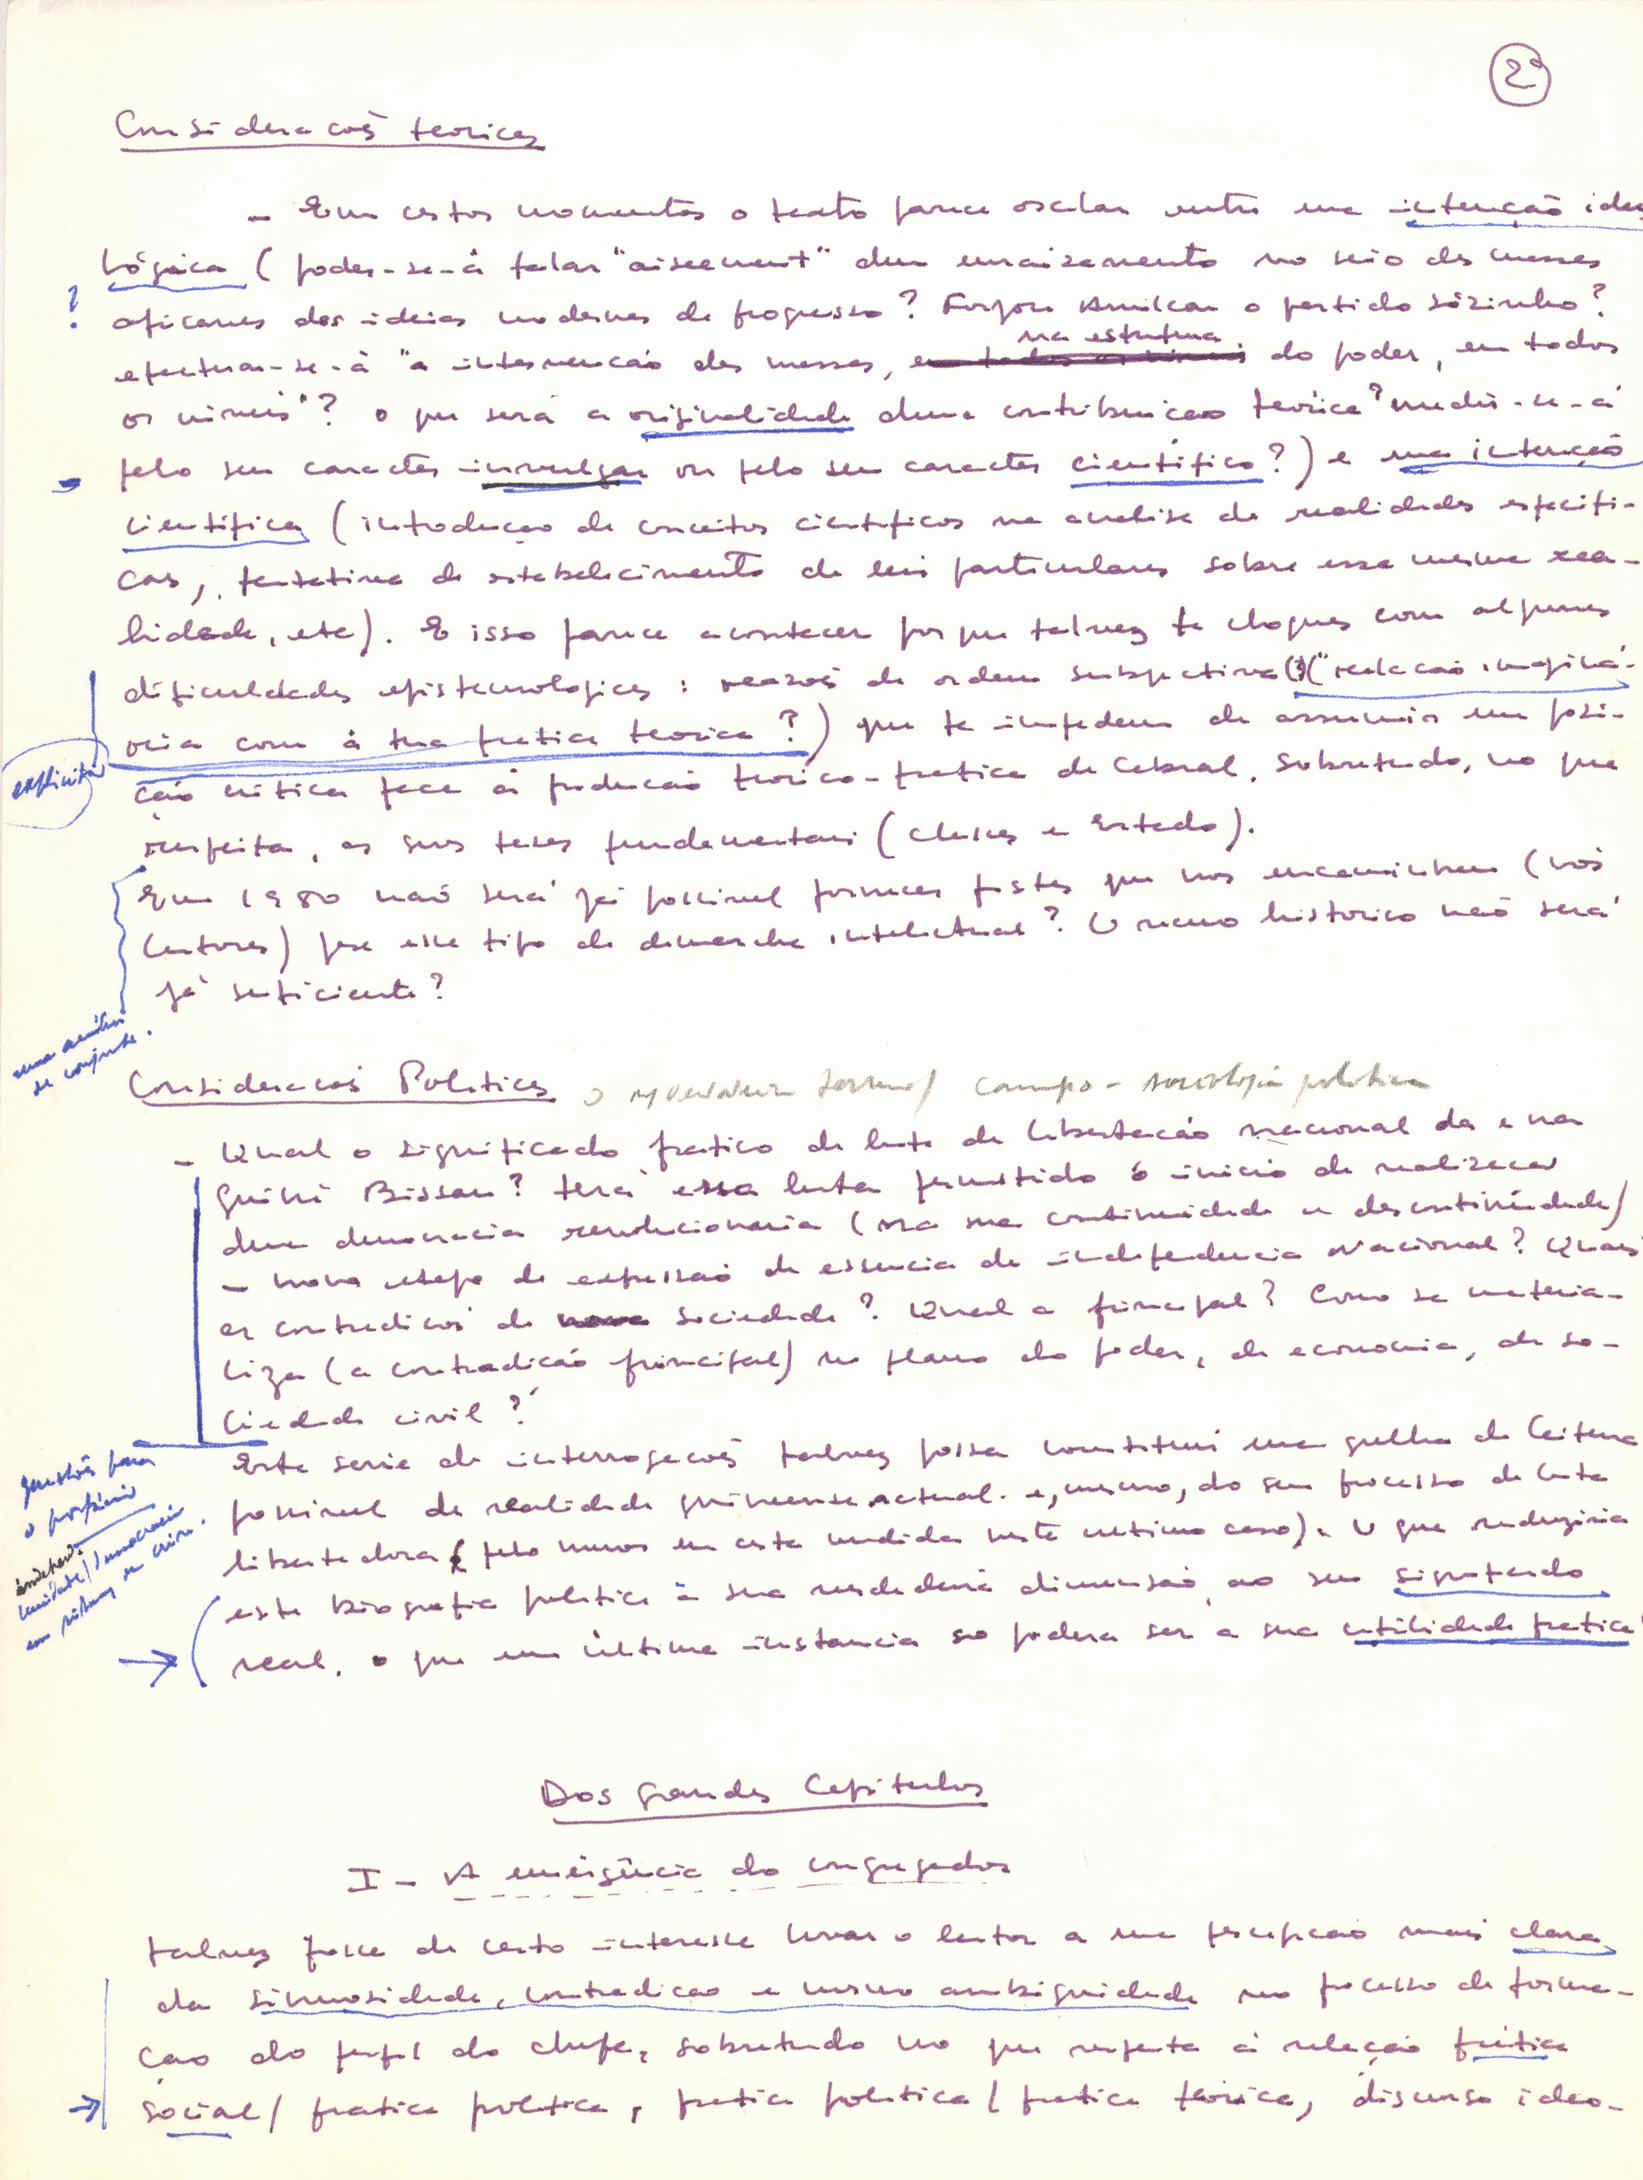 2º
Considerações teoricas
- Em certos momentos o texto parece oscilar entre uma intenção ideo
lógica (poder-se-á falar "aisément" dum enraizamento no seio das massas
africanas das ideias modernas de progresso? Forjou Amilcar o partido sòzinho?
na estrutura
efectuar-se-á "a intervenção das massas, do poder, em todos
os niveis"? o que será a originalidade duma contribuição teórica? medir-se-á
pelo seu caracter invulgar ou pelo seu caracter científico?) e uma intenção
cientifica (introdução de conceitos cientificos na analise de realidades especifi-
cas, tentativa de estabelecimento de leis particulares sobre essa mesma rea-
lidade, etc). E isso parece acontecer porque talvez te choques com algumas
dificuldades epistemologicas: razões de ordem subjectiva (?) ("relação imaginá-
ria com a tua pratica teorica?) que te impedem de assumir uma posi-
explicitar
ção critica face á produção teorico-pratica de Cabral. Sobretudo, no que
respeita, as suas teses fundamentais (classes e Estado).
Em 1980 não será já possivel fornecer pistas que nos encaminhem (nós
leitores) para esse tipo de demarche intelectual? O recuo historico não será
já suficiente?
uma análise
de conjunto.
Considerações Politicas O campo - sociologia politica
- Qual o significado pratico da luta de libertação nacional da e na
Guiné Bissau? terá essa luta permitido o inicio da realização
duma democracia revolucionaria (na sua continuidade e descontinuidade)
- nova etapa de expressão da essencia da independencia Nacional? Quais
as contradições da sociedade? Qual a principal? Como se materia-
liza (a contradição principal) no plano do poder, da economia, da so-
ciedade civil?
Esta serie de interrogações talvez possa constituir uma grelha de leitura
questões para
o prefácio
possivel da realidade guineense actual. e, mesmo, do seu processo de luta
libertadora (pelo menos em certa medida neste ultimo caso). O que reduziria
unidade/democracia
esta biografia politica à sua verdadeira dimensão, ao seu significado
real. o que em última instancia so poderá ser a sua utilidade pratica
Dos grandes Capitulos
I - A emergência do congregador
talvez fosse de certo interesse levar o leitor a uma percepção mais clara
da sinuosidade, contradição e mesmo ambiguidade no processo de forma-
ção do perfil do chefe, sobretudo no que respeita á relação prática
social/ pratica politica, pratica politica/ pratica teórica, discurso ideo-